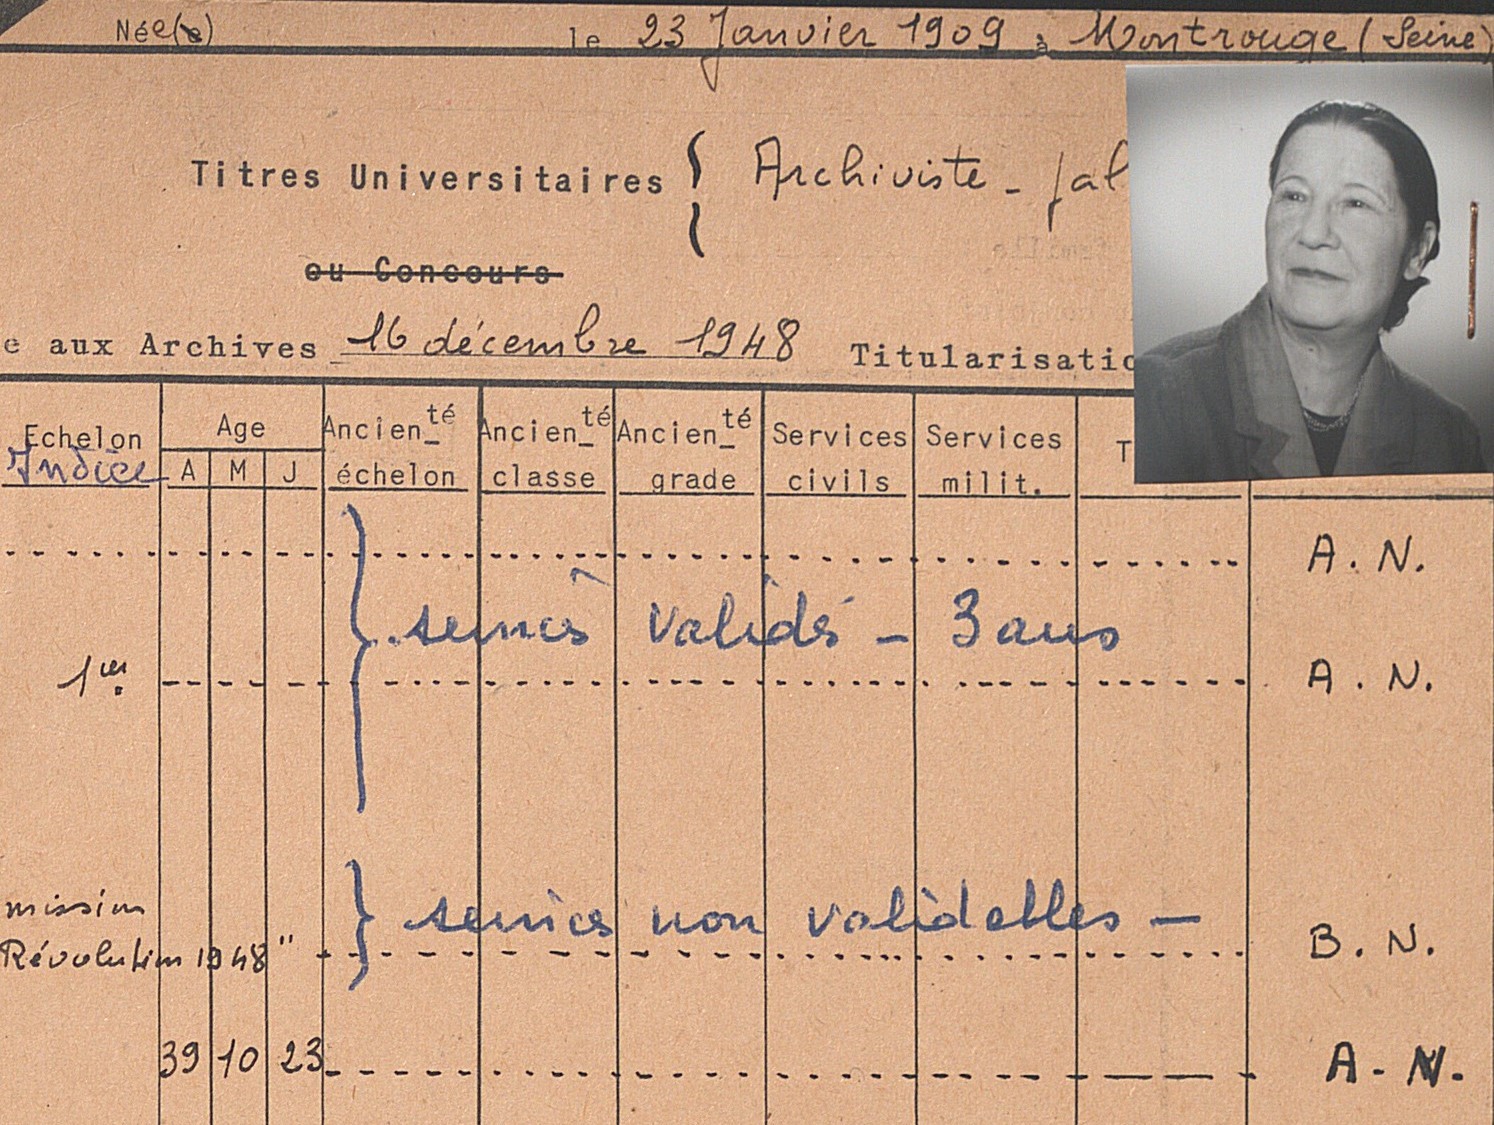 Née(s) le 23 Janvier 1909 à Montrouge (Seine)
Titres Universitaires { Archiviste - pal
ou Concours
e aux Archives 16 décembre 1948 Titularisatio
Echelon Age Ancien_té Ancien_té Ancien_té Services Services T
Indice A M J échelon classe grade civils milit.
A. N.
services validés - 3 ans
1er. A. N.
mission services non validables -
Révolution 1948" B. N.
39 10 23 A. N.